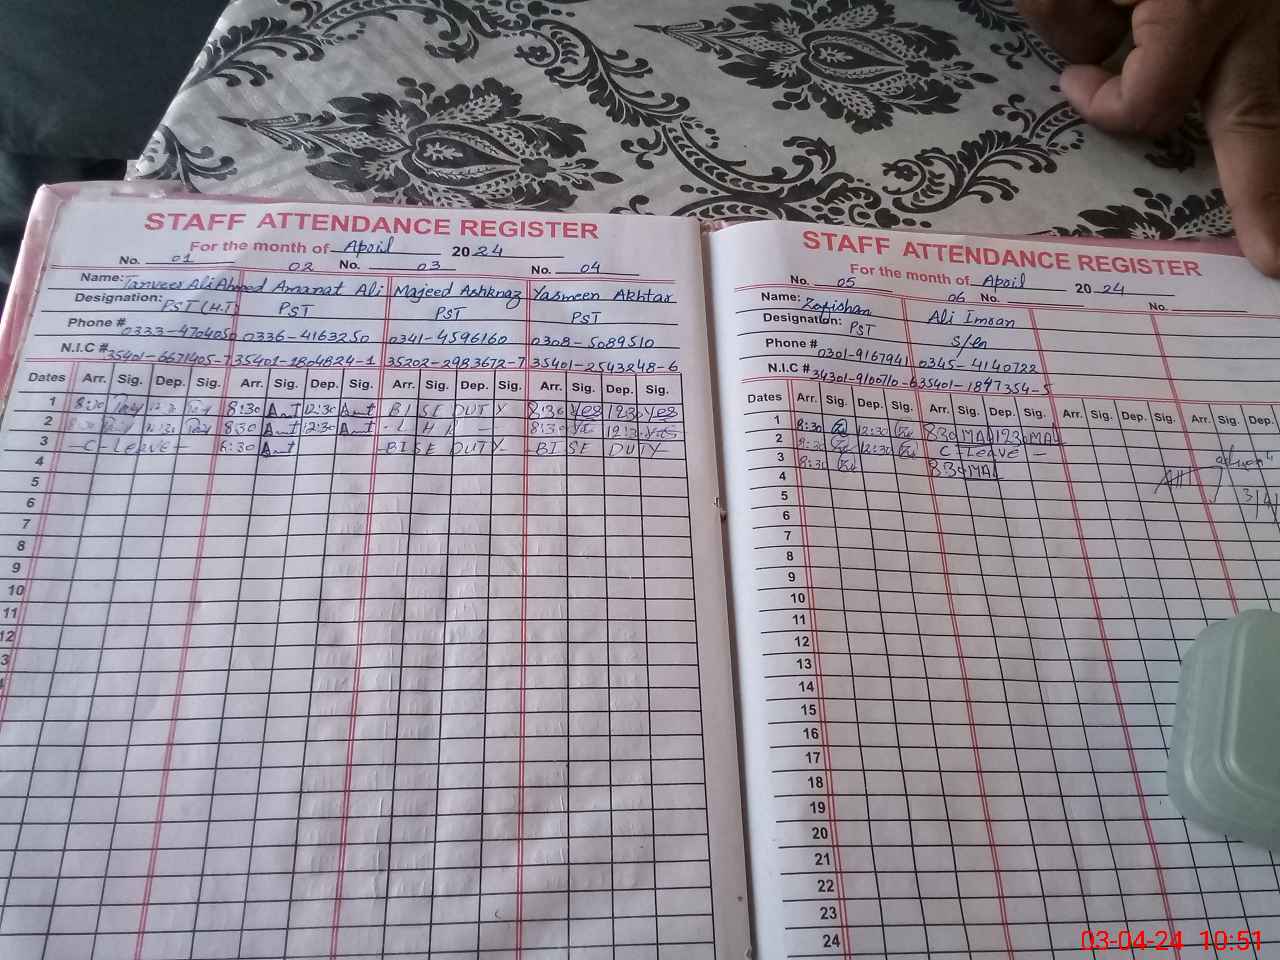 STAFF ATTENDANCE REGISTER
For the month of April 2024
No. 01 02 No. 03 No. 04
Name: Tanveer Ali Ahmed Amanat Ali Majeed Ashknaz Yasmeen Akhtar
Designation: PST (H.T) PST PST PST
Phone # 0333-4704050 0336-4163250 0341-4596160 0308-5089510
N.I.C # 35401-6671405-7 35401-1804824-1 35202-2983672-7 35401-2543248-6
Dates Arr. Sig. Dep. Sig. Arr. Sig. Dep. Sig. Arr. Sig. Dep. Sig. Arr. Sig. Dep. Sig.
1 8:30 12:30 8:30 Amt 12:30 Amt BISE DUTY 8:30 Yes 12:30 Yes
2 8:30 12:30 8:30 Amt 12:30 Amt 8:30 Yes 12:30 Yes
3 - C - Leave - 8:30 Amt - BISE DUTY - BISE DUTY
4
5
6
7
8
9
10
11
12
3
STAFF ATTENDANCE REGISTER
For the month of April 2024
No. 05 06 No. No.
Name: Zafishan Ali Imran
Designation: PST S/en
Phone # 0301-9167941 0345-4140722
N.I.C # 34301-9100710-6 35401-1897354-5
Dates Arr. Sig. Dep. Sig. Arr. Sig. Dep. Sig. Arr. Sig. Dep. Sig. Arr. Sig. Dep.
1 8:30 12:30 8:30 MAL 12:30 MAL
2 8:30 12:30 C - Leave -
3 8:30 8:30 MAL
4
5 3/4/
6
7
8
9
10
11
12
13
14
15
16
17
18
19
20
21
22
23
24
03-04-24 10:51